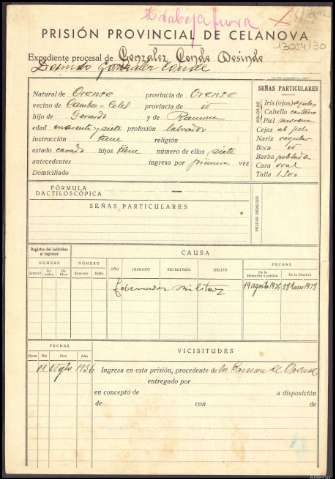 Trabajadora
13024/30
PRISIÓN PROVINCIAL DE CELANOVA
Expediente procesal de Gonzalez Conde Desindo
Desindo Gonzalez Conde
Natural de Orense provincia de Orense
vecino de provincia de id
hijo de Gerardo y de Ramona
edad cuarenta y siete profesión labrador
instrucción tiene religión
estado casado hijos tiene número de ellos, siete
antecedentes ingresa por primera vez
Domiciliado
SEÑAS PARTICULARES
Iris (ojos)
Cabello castaño
Piel morena
Cejas al pelo
Nariz regular
Boca id
Barba poblada
Cara oval
Talla 1.500
FÓRMULA
DACTILOSCÓPICA
SEÑAS PARTICULARES
Registro del individuo
al ingresar
CAUSA
FECHAS
NÚMERO
AÑO
JUZGADO
SECRETARÍA
DELITO
FECHAS
Gobernador Militar
19 agosto 1936
FECHAS
VICISITUDES
Hora
Día
Mes
Año
19 Agto 1936
Ingresa en esta prisión, procedente de la Prision de Orense
entregado por
en concepto de a disposición
de con de